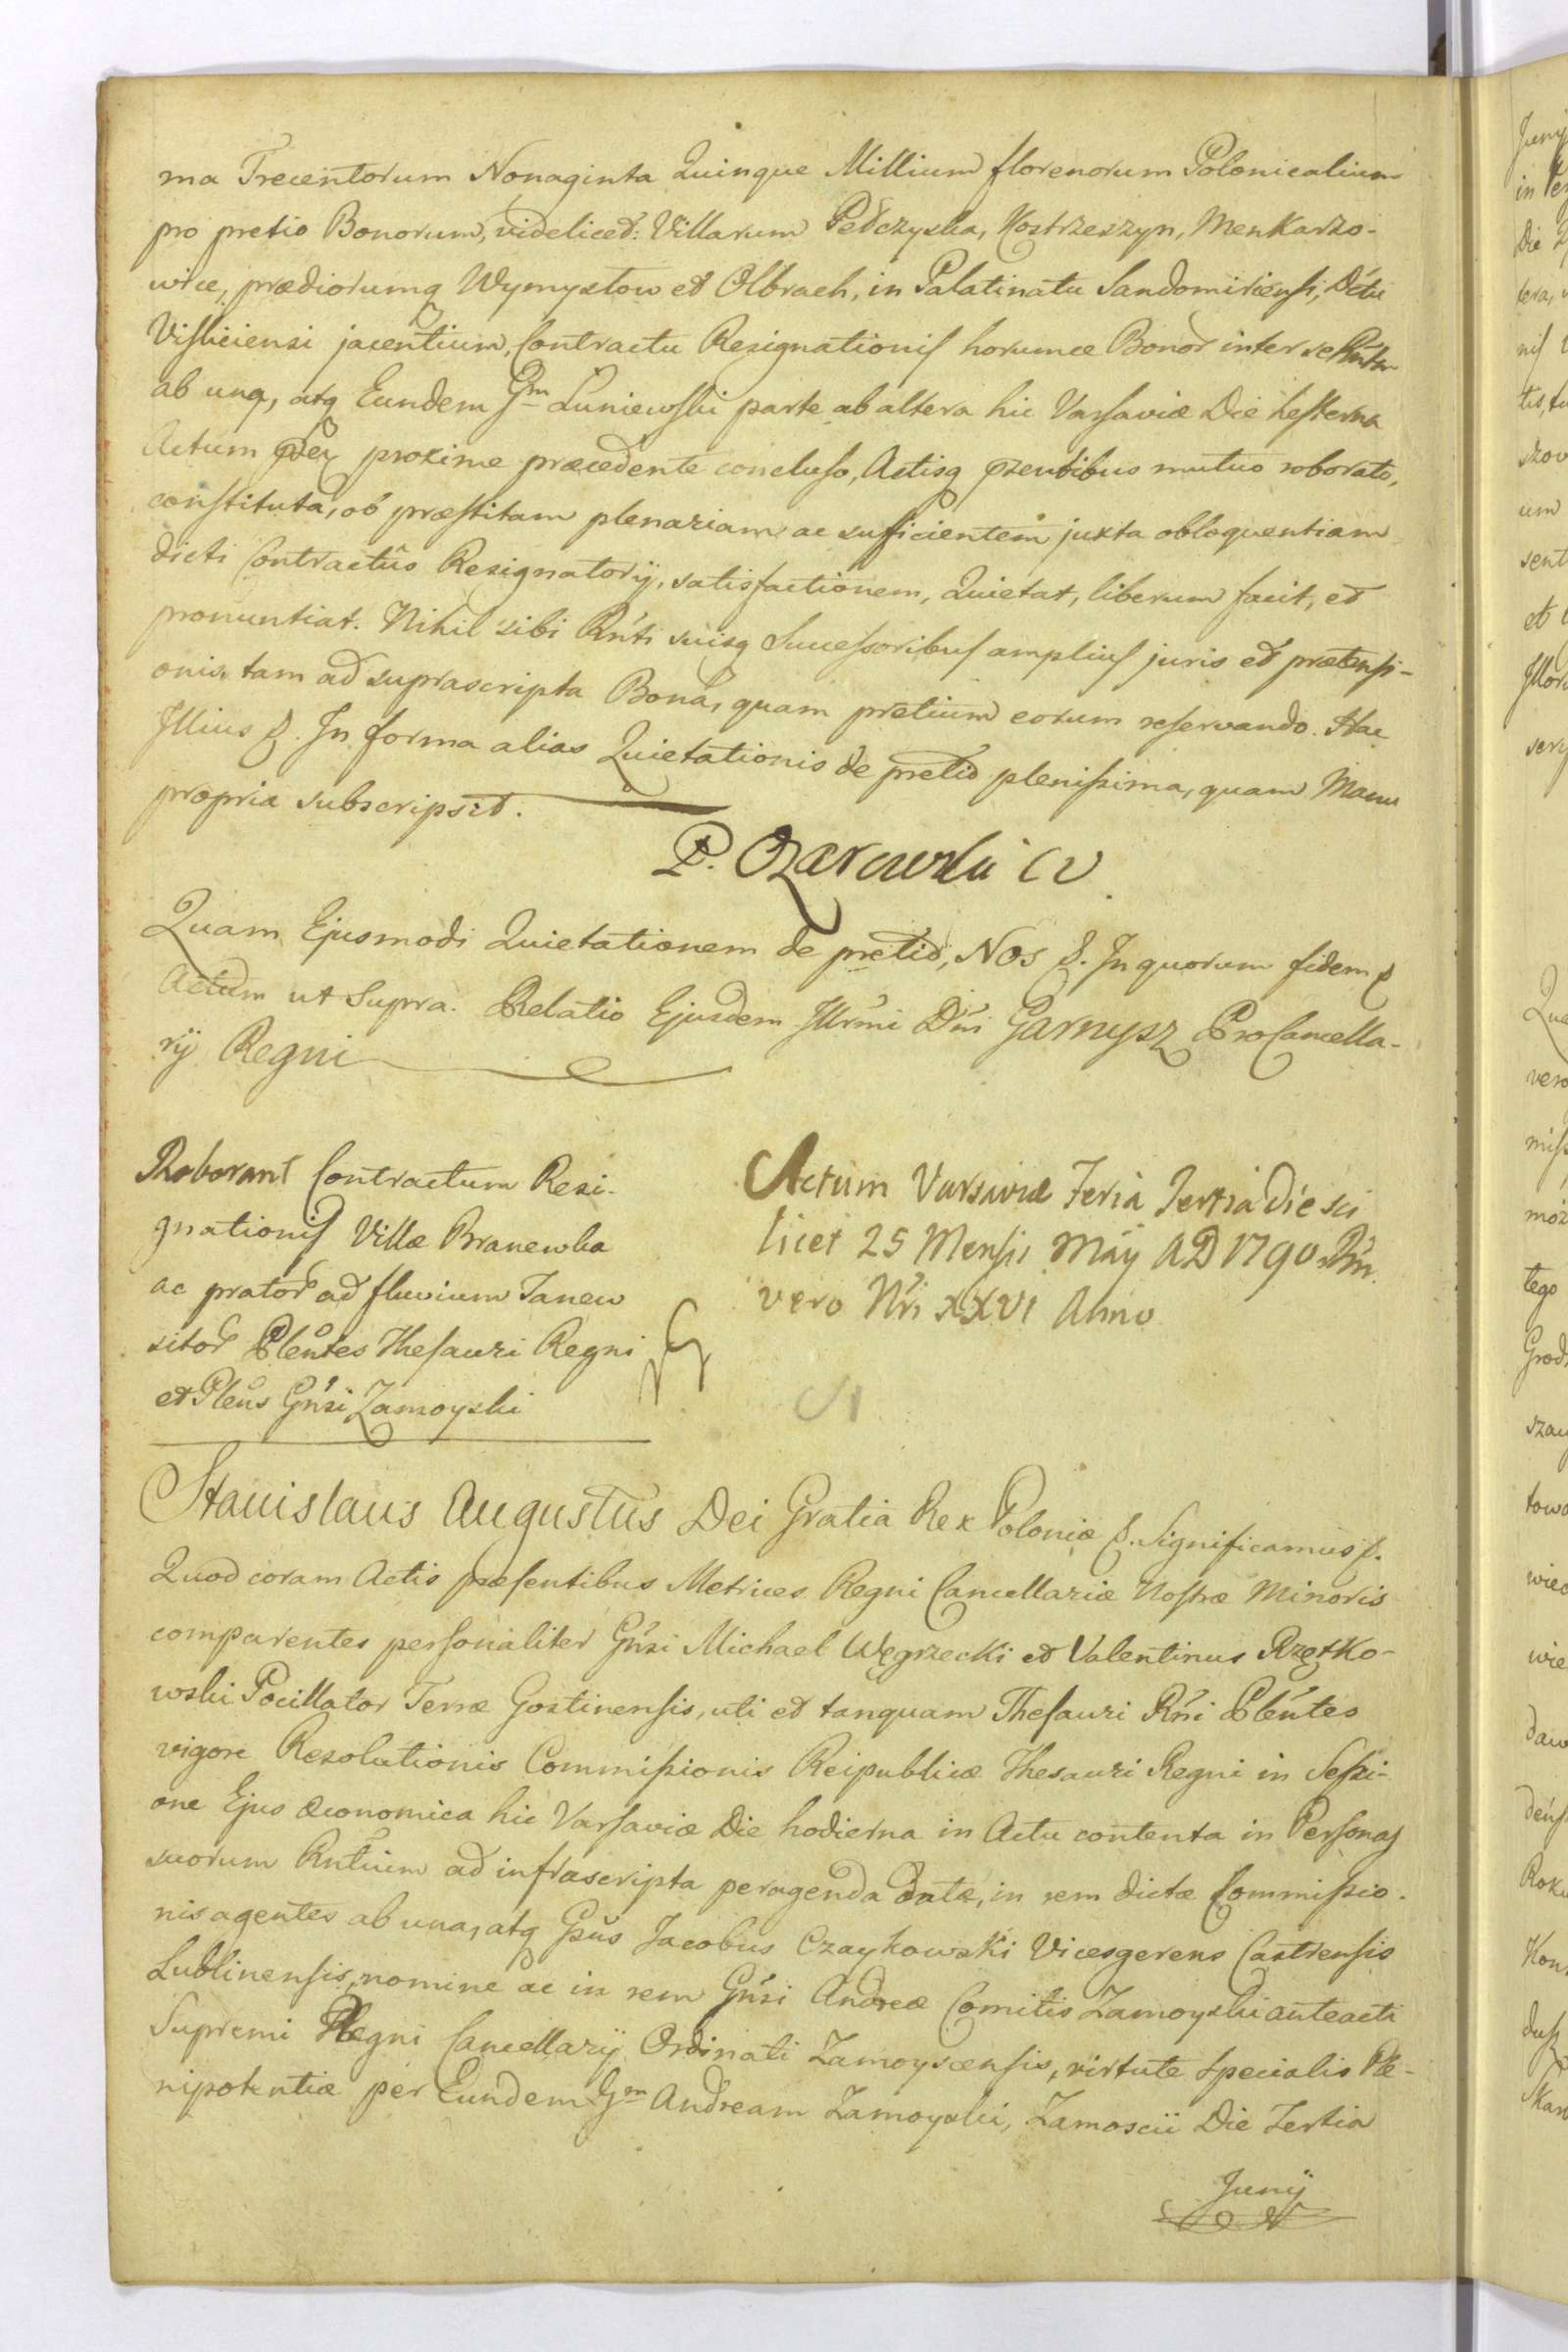 ma Trecentorum Nonaginta Quinque Millium florenorum Polonicalium
pro pretio Bonorum, videlicet: Villarum Pełczyska, Kostrzeszyn, Menkarzo-
wice, prædiorumq Wymysłow et Olbrach, in Palatinatu Sandomiriensi, Dctu
Visliciensi jacentium, Contractu Resignationis horumce Bonor inter se
ab una, atq Eundem Gm Łuniewski parte ab altera hic Varsaviæ Die hesterna
Actum proxime præcedente concluso, Actisq pzentibus mutuo roborato,
constituta, ob præstitam plenariam ac sufficientem juxta obloquentiam
dicti Contractûs Resignatorij, satisfactionem, Quietat, liberum facit, et
pronuntiat. Nihil sibi Rńti suisq Successoribus amplius juris et prætensi-
onis, tam ad suprascripta Bona, quam pretium eorum reservando. Hac
Illius &. In forma alias Quietationis de pretio plenissima, quam Manu
propria subscripsit.
P. Ozarowski
Quam Ejusmodi Quietationem de pretio, Nos &. In quorum fidem &
Actum ut Supra. Relatio Ejusdem Illrmi Dni Garnysz ProCancella-
rij Regni
Roborant Contractum Resi-
gnationis Villæ Branewka
ac prator ad fluvium Tanew
sitor Plentes Thesauri Regni
et Plens Gńsi Zamoyski
Actum Varsaviæ Feria Tertia die sci
licet 25 Mensis Maÿ AD 1790. Rni.
vero Nri XXVI Anno
Stanislaus Augustus Dei Gratia Rex Poloniæ &. Significamus &.
Quod coram Actis præsentibus Metrices Regni Cancellariæ Nostræ Minoris
comparentes personaliter Gńsi Michael Węgrzecki et Valentinus Rzętko-
wski Pocillator Terræ Gostinensis, uti et tanquam Thesauri Rńi Plentes
vigore Resolutionis Commissionis Reipublicæ Thesauri Regni in Sessi-
one Ejus Œconomica hic Varsaviæ Die hodierna in Actu contenta in Personas
suorum Rntium ad infrascripta peragenda datæ, in rem dictæ Commissio-
nis agentes ab una, atq Gsus Jacobus Czaykowski Vicesgerens Castrensis
Lublinensis, nomine ac in rem Gńsi Andreæ Comitis Zamoyski anteacti
Supremi Regni Cancellarij Ordinati Zamoyscensis, virtute specialis Ple-
nipotentiæ per Eundem Gm Andream Zamoyski, Zamoscii Die Tertia
Junij